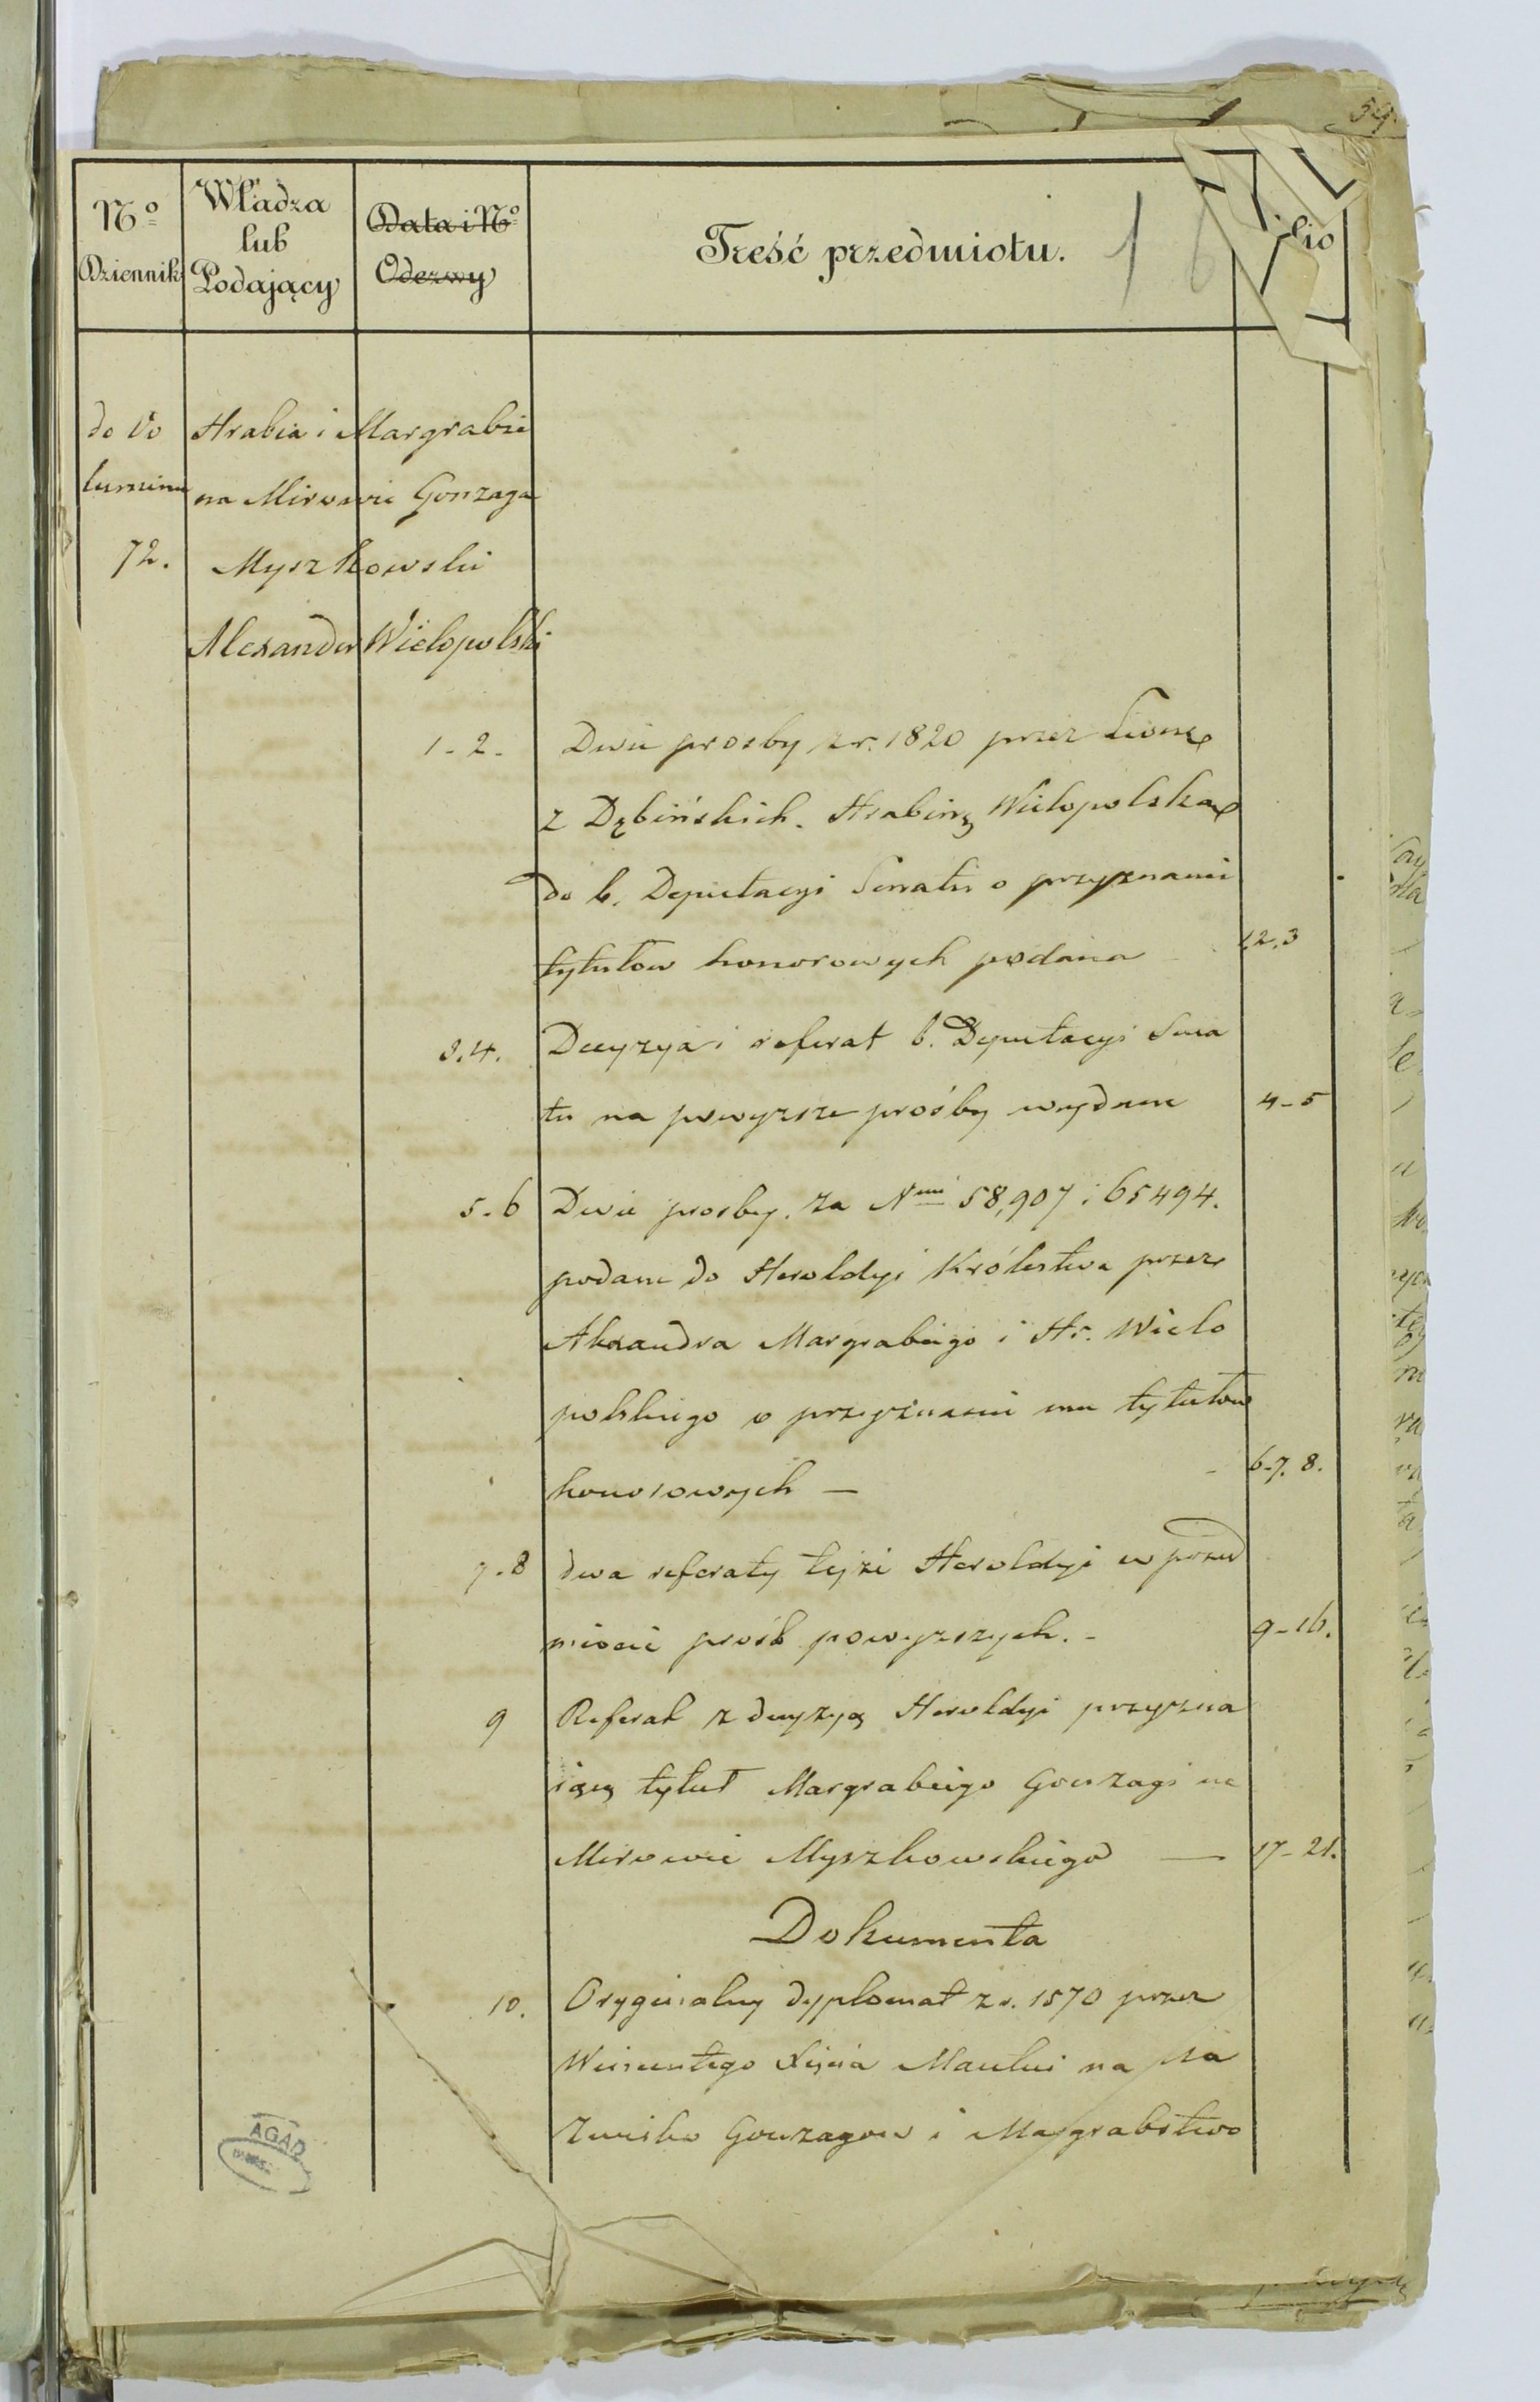 59.
Nº Dziennik
Władza lub Podający
Data i Nº Odezwy
Treść przedmiotu.
16
lio
do Vo
lumenu
72.
Hrabia i Margrabie
na Mirowie Gonzaga
Myszkowski
Alexander Wielopolski
1-2. Dwie prosby z r. 1820 przez Leonę
z Dębińskich. Hrabinę Wielopolską
do b. Deputacyi Senatu o przyznanie
tytułow honorowych podana 1.2.3
3.4. Decyzya i referat b. Deputacyi Sena
tu na powyzsze prośby wydane 4-5
5-6 Dwie prosby. za Nmi 58,907 i 65494.
podane do Heroldyi Królestwa przez
Alexandra Margrabiego i Hr. Wielo
polskiego o przyznanie mu tytułow
honorowych — 6-7. 8.
7-8 dwa referaty tejże Heroldyi w przed
miocie prośb powyzszych. - 9-16.
9 Referat z decyzyą Heroldyi przyzna
iącą tytuł Margrabiego Gonzagi na
Mirowie Myszkowskiego — 17-21.
Dokumenta
10. Oryginalny dyplomat z r. 1570 przez
Wincentego Xięcia Mantui na Na
zwisko Gonzagow i Margrabstwo
AGAD